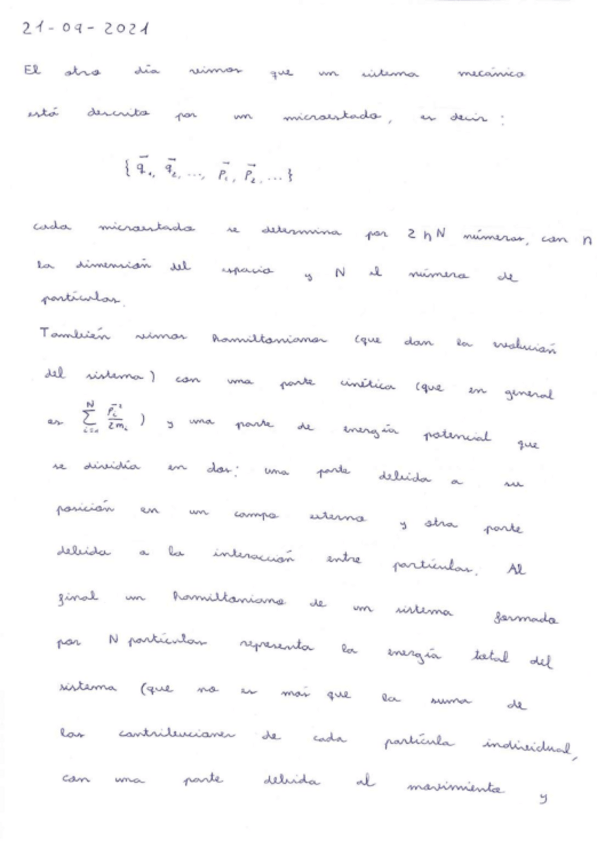 21-09-2021
El otro día vimos que un sistema mecánico
está descrito por un microestado, es decir:
{ q⃗₁, q⃗₂, ..., p⃗₁, p⃗₂, ... }
cada microestado se determina por 2nN números, con n
la dimensión del espacio y N el número de
partículas.
También vimos hamiltonianos (que dan la evolución
del sistema) con una parte cinética (que en general
es \sum_{i=1}^{N} \frac{\vec{p}_i^2}{2m_i}) y una parte de energía potencial que
se dividía en dos: una parte debida a su
posición en un campo externo y otra parte
debida a la interacción entre partículas. Al
final un hamiltoniano de un sistema formado
por N partículas representa la energía total del
sistema (que no es más que la suma de
las contribuciones de cada partícula individual,
con una parte debida al movimiento y